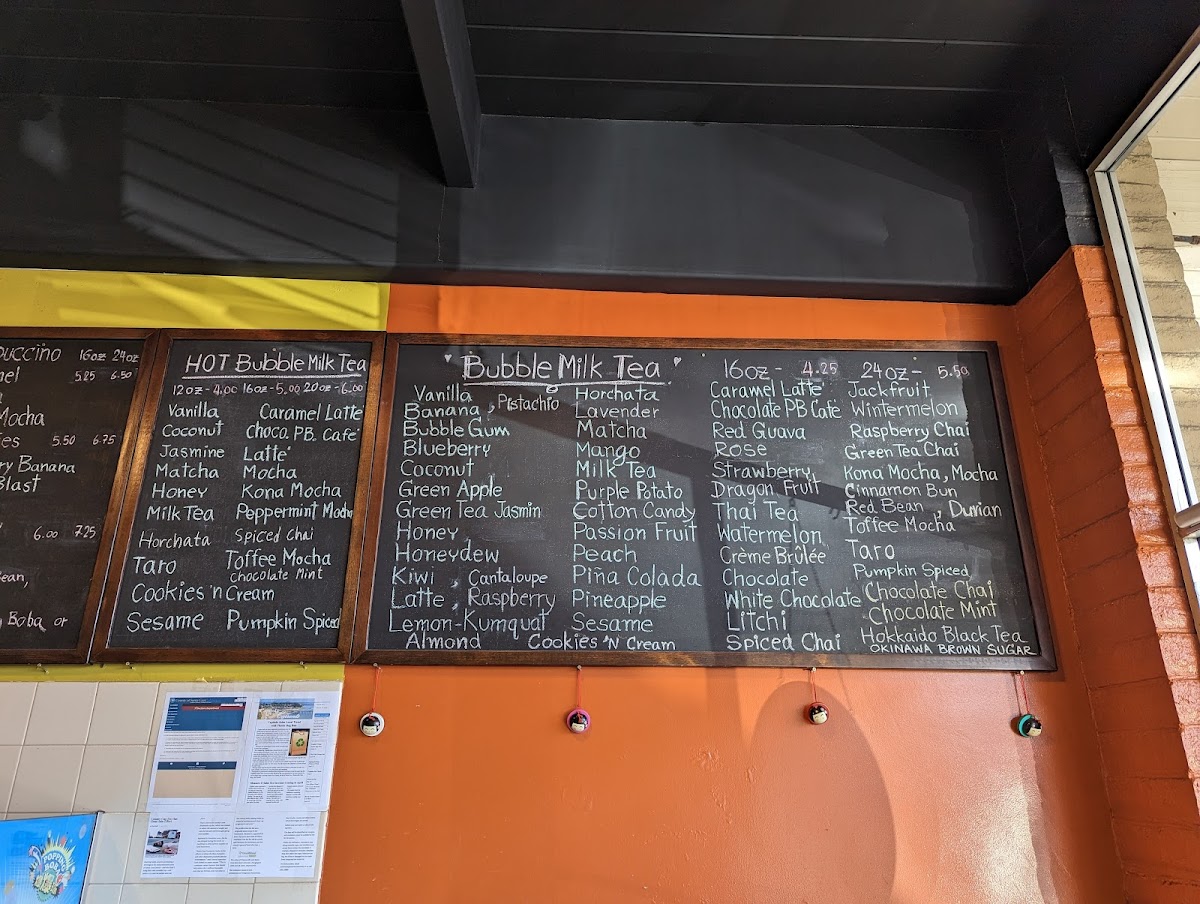 puccino 16oz 24oz
nel 5.25 6.50
Mocha
ies 5.50 6.75
ry Banana
Blast
6.00 7.25
Bean,
Boba or
HOT Bubble Milk Tea
12oz - 4.00 16oz - 5.00 20oz - 6.00
Vanilla Caramel Latte
Coconut Choco. P.B. Café
Jasmine Latté
Matcha Mocha
Honey Kona Mocha
Milk Tea Peppermint Mocha
Horchata Spiced Chai
Taro Toffee Mocha
Chocolate Mint
Cookies 'n Cream
Sesame Pumpkin Spiced
Bubble Milk Tea 16oz - 4.25 24oz - 5.50
Vanilla Horchata Caramel Latté Jackfruit
Banana, Pistachio Lavender Chocolate PB Café Wintermelon
Bubble Gum Matcha Red Guava Raspberry Chai
Blueberry Mango Rose Green Tea Chai
Coconut Milk Tea Strawberry, Kona Mocha, Mocha
Green Apple Purple Potato Dragon Fruit Cinnamon Bun
Green Tea Jasmin Cotton Candy Thai Tea Red Bean, Durian
Honey Passion Fruit Watermelon Toffee Mocha
Honeydew Peach Crème Brûlée Taro
Kiwi, Cantaloupe Piña Colada Chocolate Pumpkin Spiced
Latte, Raspberry Pineapple White Chocolate Chocolate Chai
Lemon-Kumquat Sesame Litchi Chocolate Mint
Almond Cookies 'N Cream Spiced Chai Hokkaido Black Tea
OKINAWA BROWN SUGAR